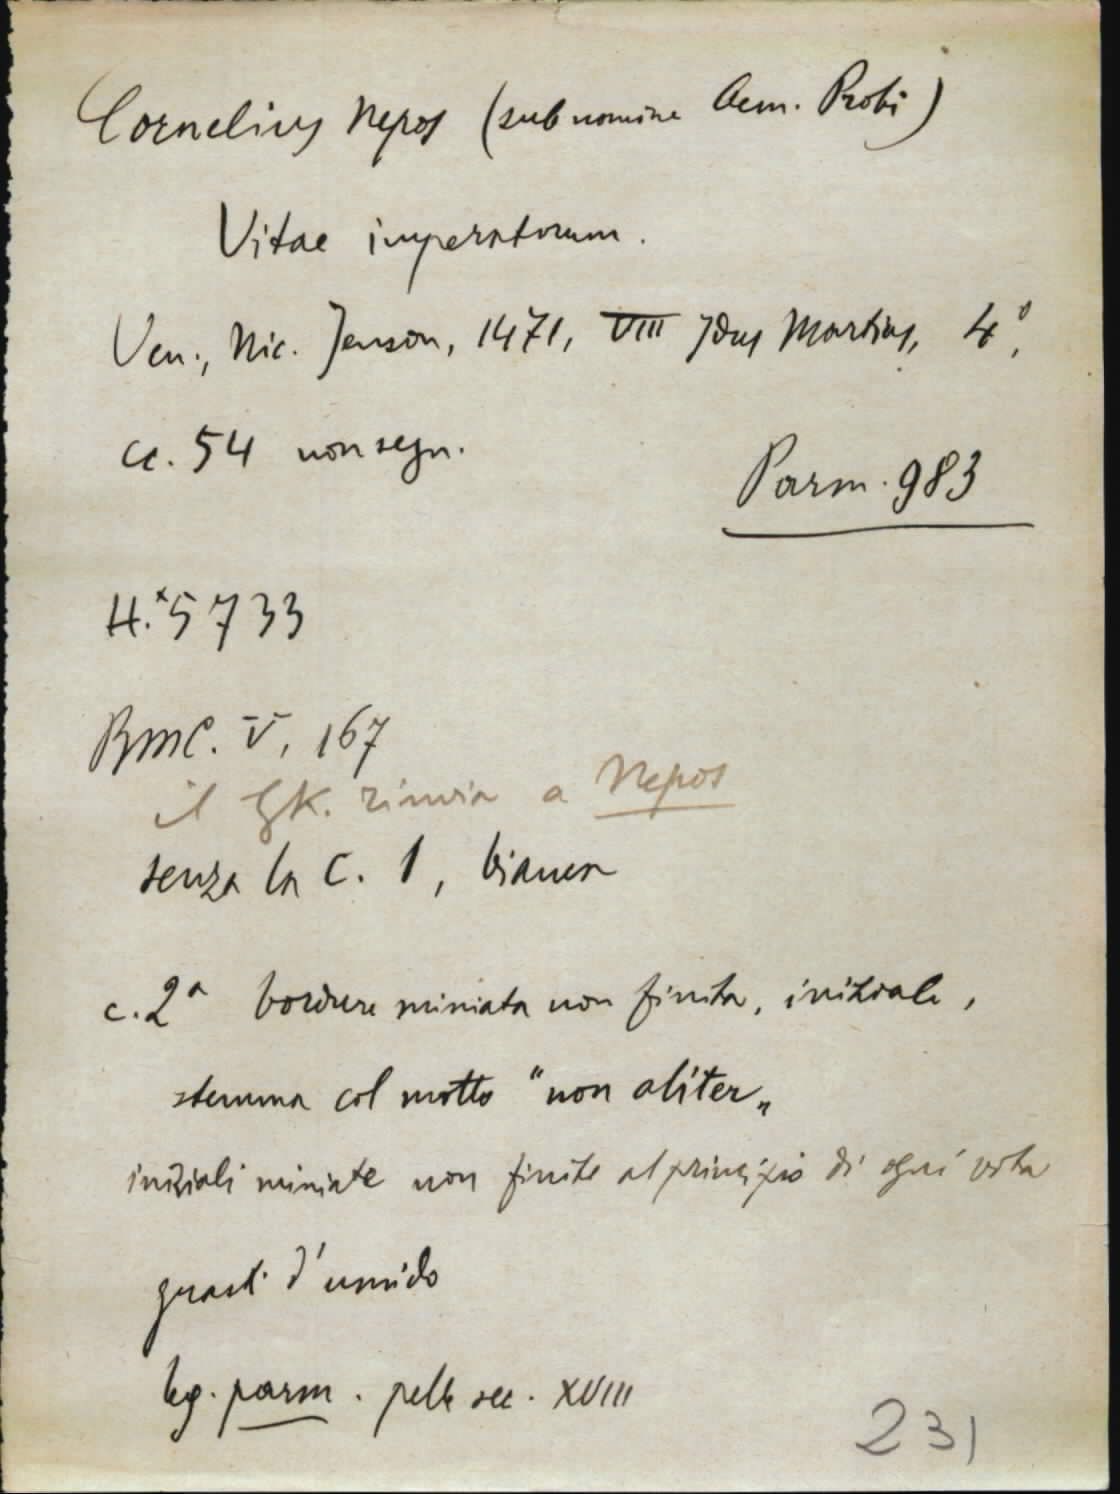 Cornelius Nepos (sub nomine Aem. Probi)
Vitae imperatorum.
Ven., Nic. Jenson, 1471, VIII Idus Martias, 4°,
cc. 54 non segn.
Parm. 983
H.*5733
BMC. V, 167
il GK. rinvia a Nepos
senza la c. 1, bianca
c. 2ª bordura miniata non finita, iniziale,
stemma col motto "non aliter„
iniziali miniate non finite al principio di ogni vita
guasti d'umido
leg. parm. pelle sec. XVIII
231